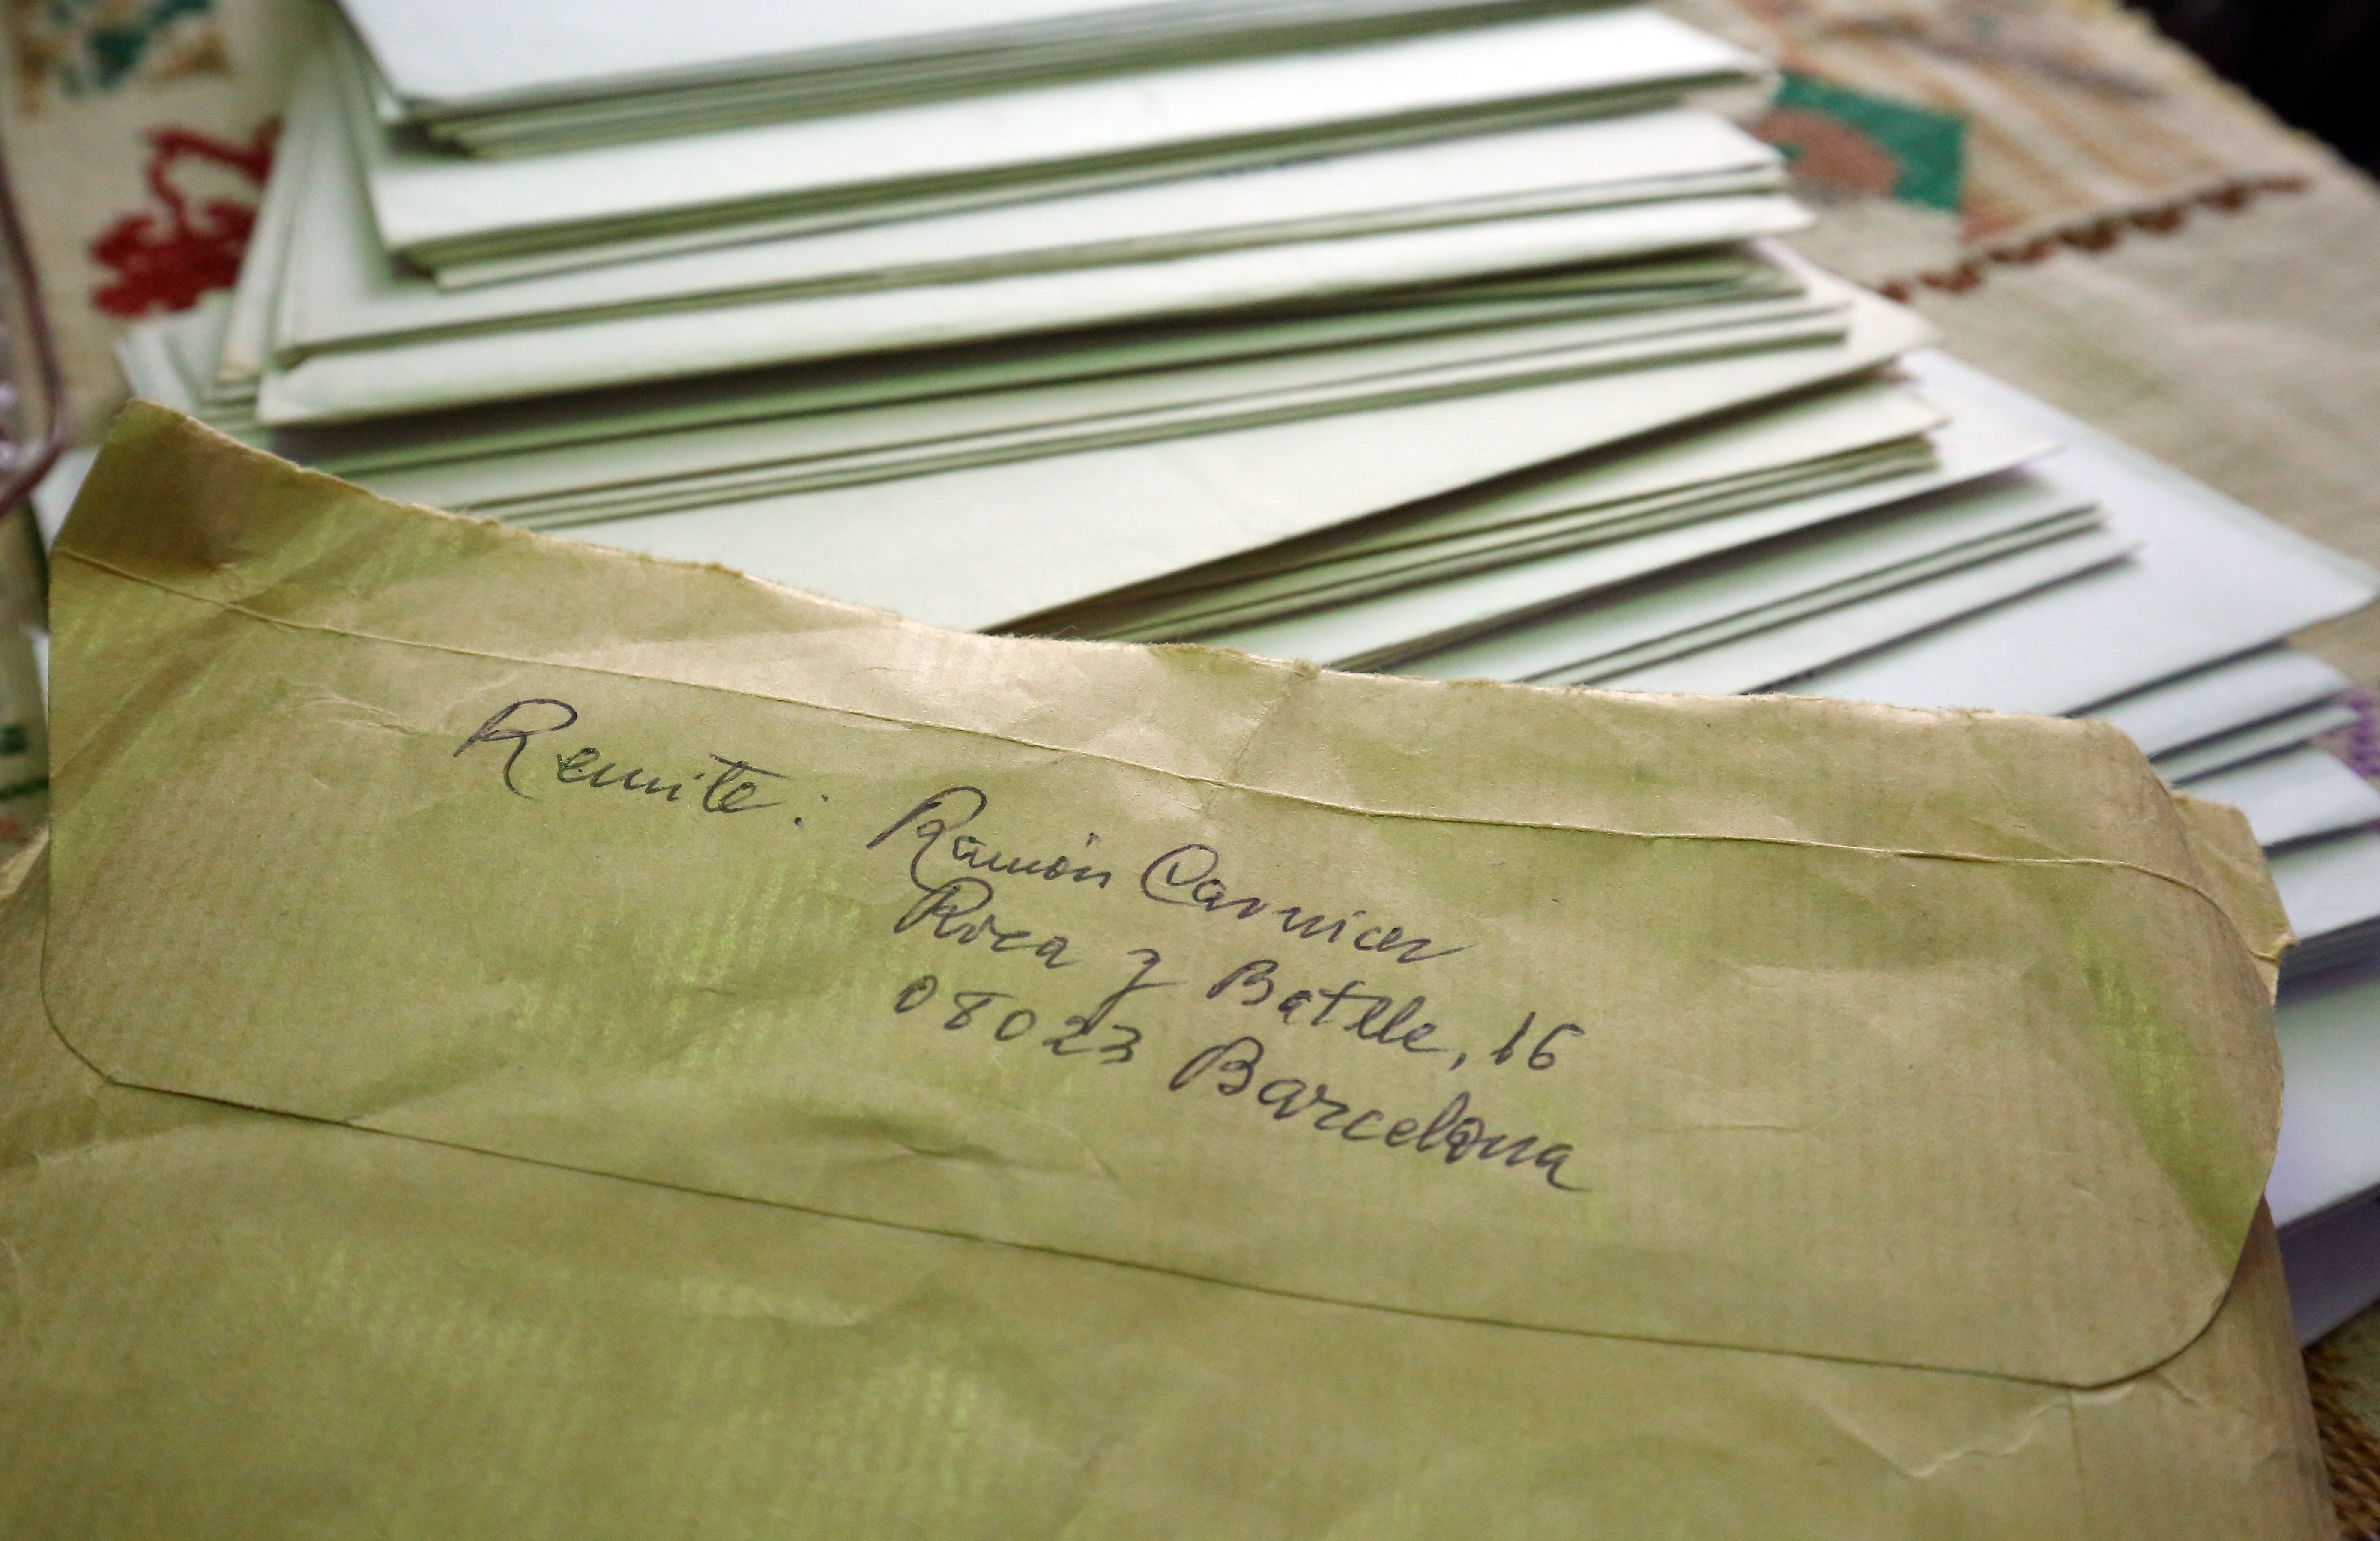 Remite: Ramón Carnicer
Roca y Batlle, 16
08023 Barcelona